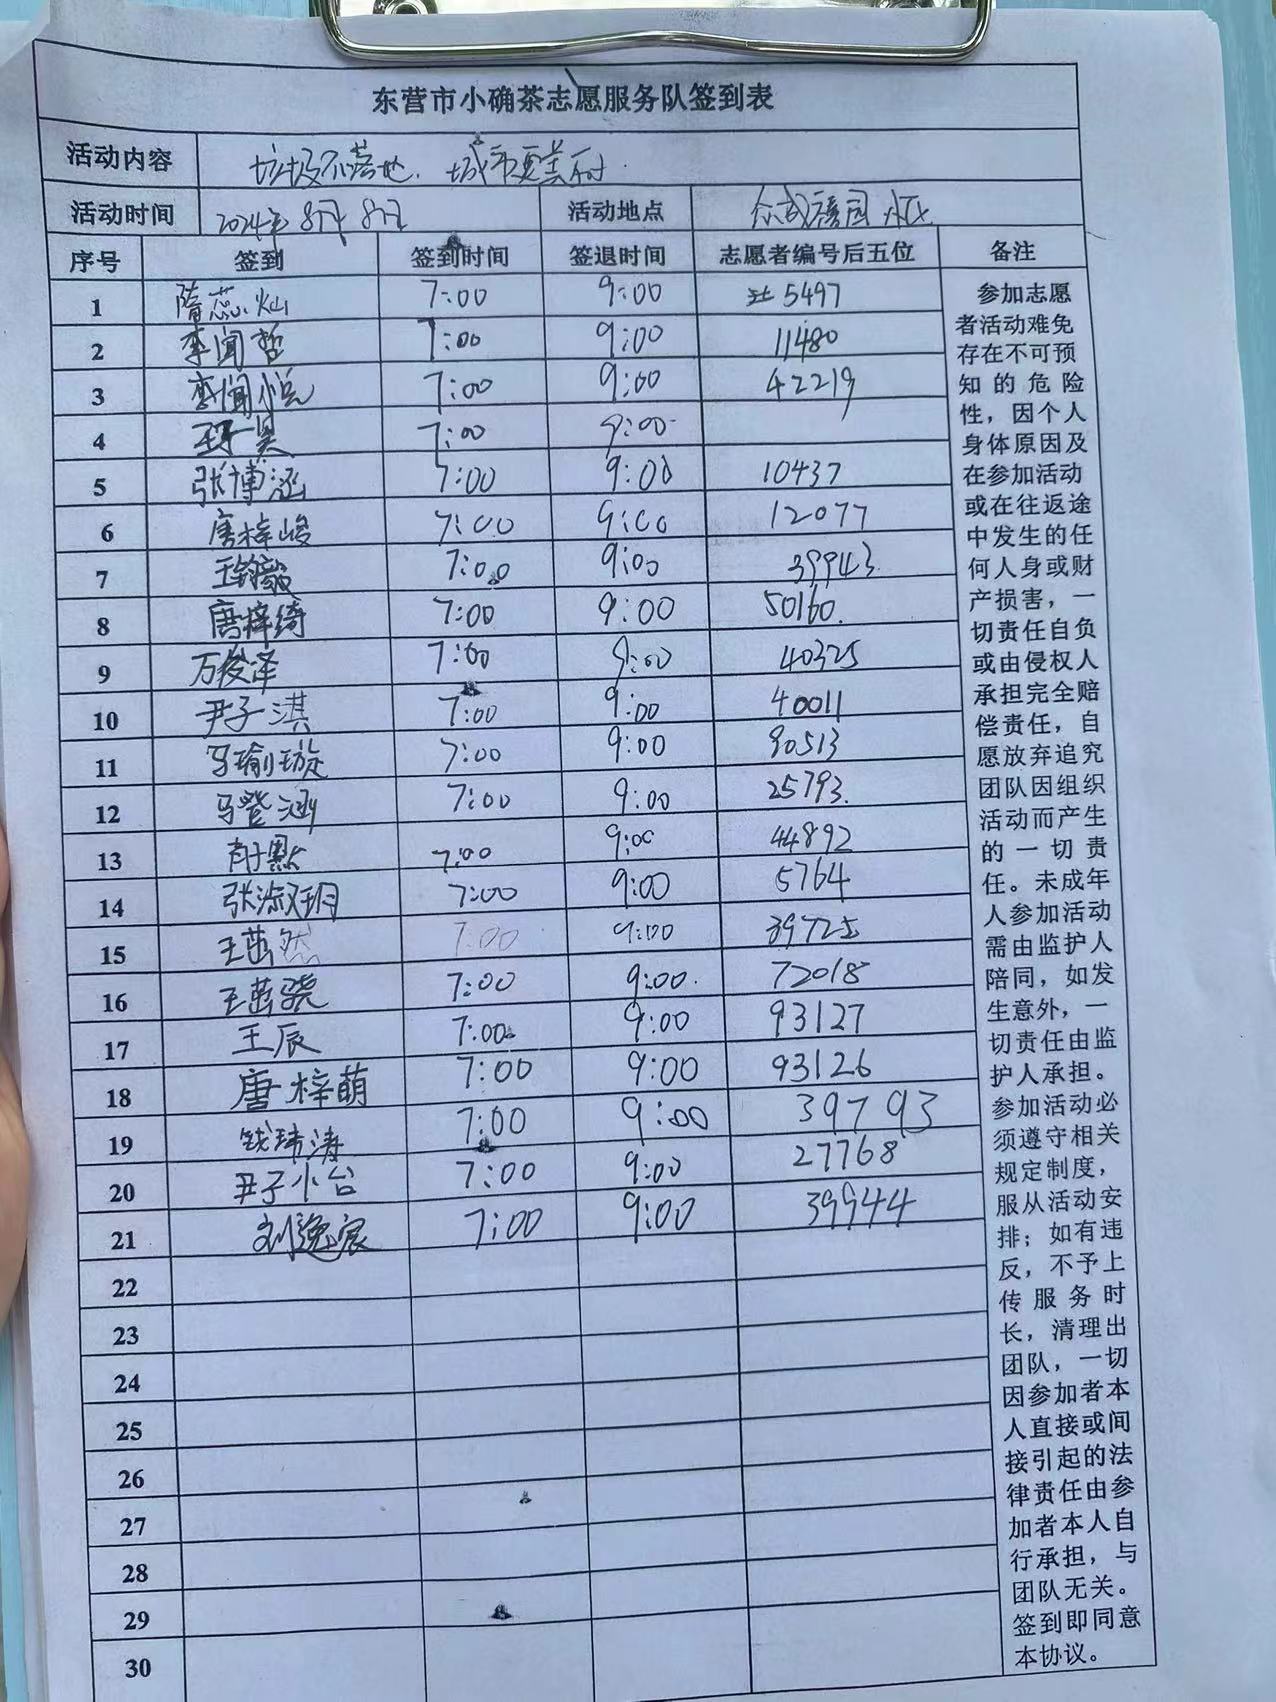 东营市小确茶志愿服务队签到表
活动内容 垃圾不落地.城市更美丽.
活动时间 2024年8月8日 活动地点
序号 签到 签到时间 签退时间 志愿者编号后五位 备注
1 隋蕊灿 7:00 9:00 5497
2 李闻哲 7:00 9:00 11480
3 李闻悦 7:00 9:00 42219
4 7:00 9:00
5 张博涵 7:00 9:00 10437
6 唐梓峻 7:00 9:00 12077
7 7:00 9:00 39943
8 唐梓绮 7:00 9:00 50160.
9 万俊泽 7:00 9:00 40325
10 尹子淇 7:00 9:00 40011
11 马瑜璇 7:00 9:00 90513
12 马登涵 7:00 9:00 25793.
13 7:00 9:00 44892
14 张淑玥 7:00 9:00 5764
15 王茁然 7:00 9:00 39725
16 王茁骁 7:00 9:00. 72018
17 王辰 7:00 9:00 93127
18 唐梓萌 7:00 9:00 93126
19 钱玮涛 7:00 9:00 39793
20 尹子 7:00 9:00 27768
21 刘逸宸 7:00 9:00 39944
22
23
24
25
26
27
28
29
30
参加志愿
者活动难免
存在不可预
知的危险
性，因个人
身体原因及
在参加活动
或在往返途
中发生的任
何人身或财
产损害，一
切责任自负
或由侵权人
承担完全赔
偿责任，自
愿放弃追究
团队因组织
活动而产生
的一切责
任。未成年
人参加活动
需由监护人
陪同，如发
生意外，一
切责任由监
护人承担。
参加活动必
须遵守相关
规定制度，
服从活动安
排；如有违
反，不予上
传服务时
长，清理出
团队，一切
因参加者本
人直接或间
接引起的法
律责任由参
加者本人自
行承担，与
团队无关。
签到即同意
本协议。